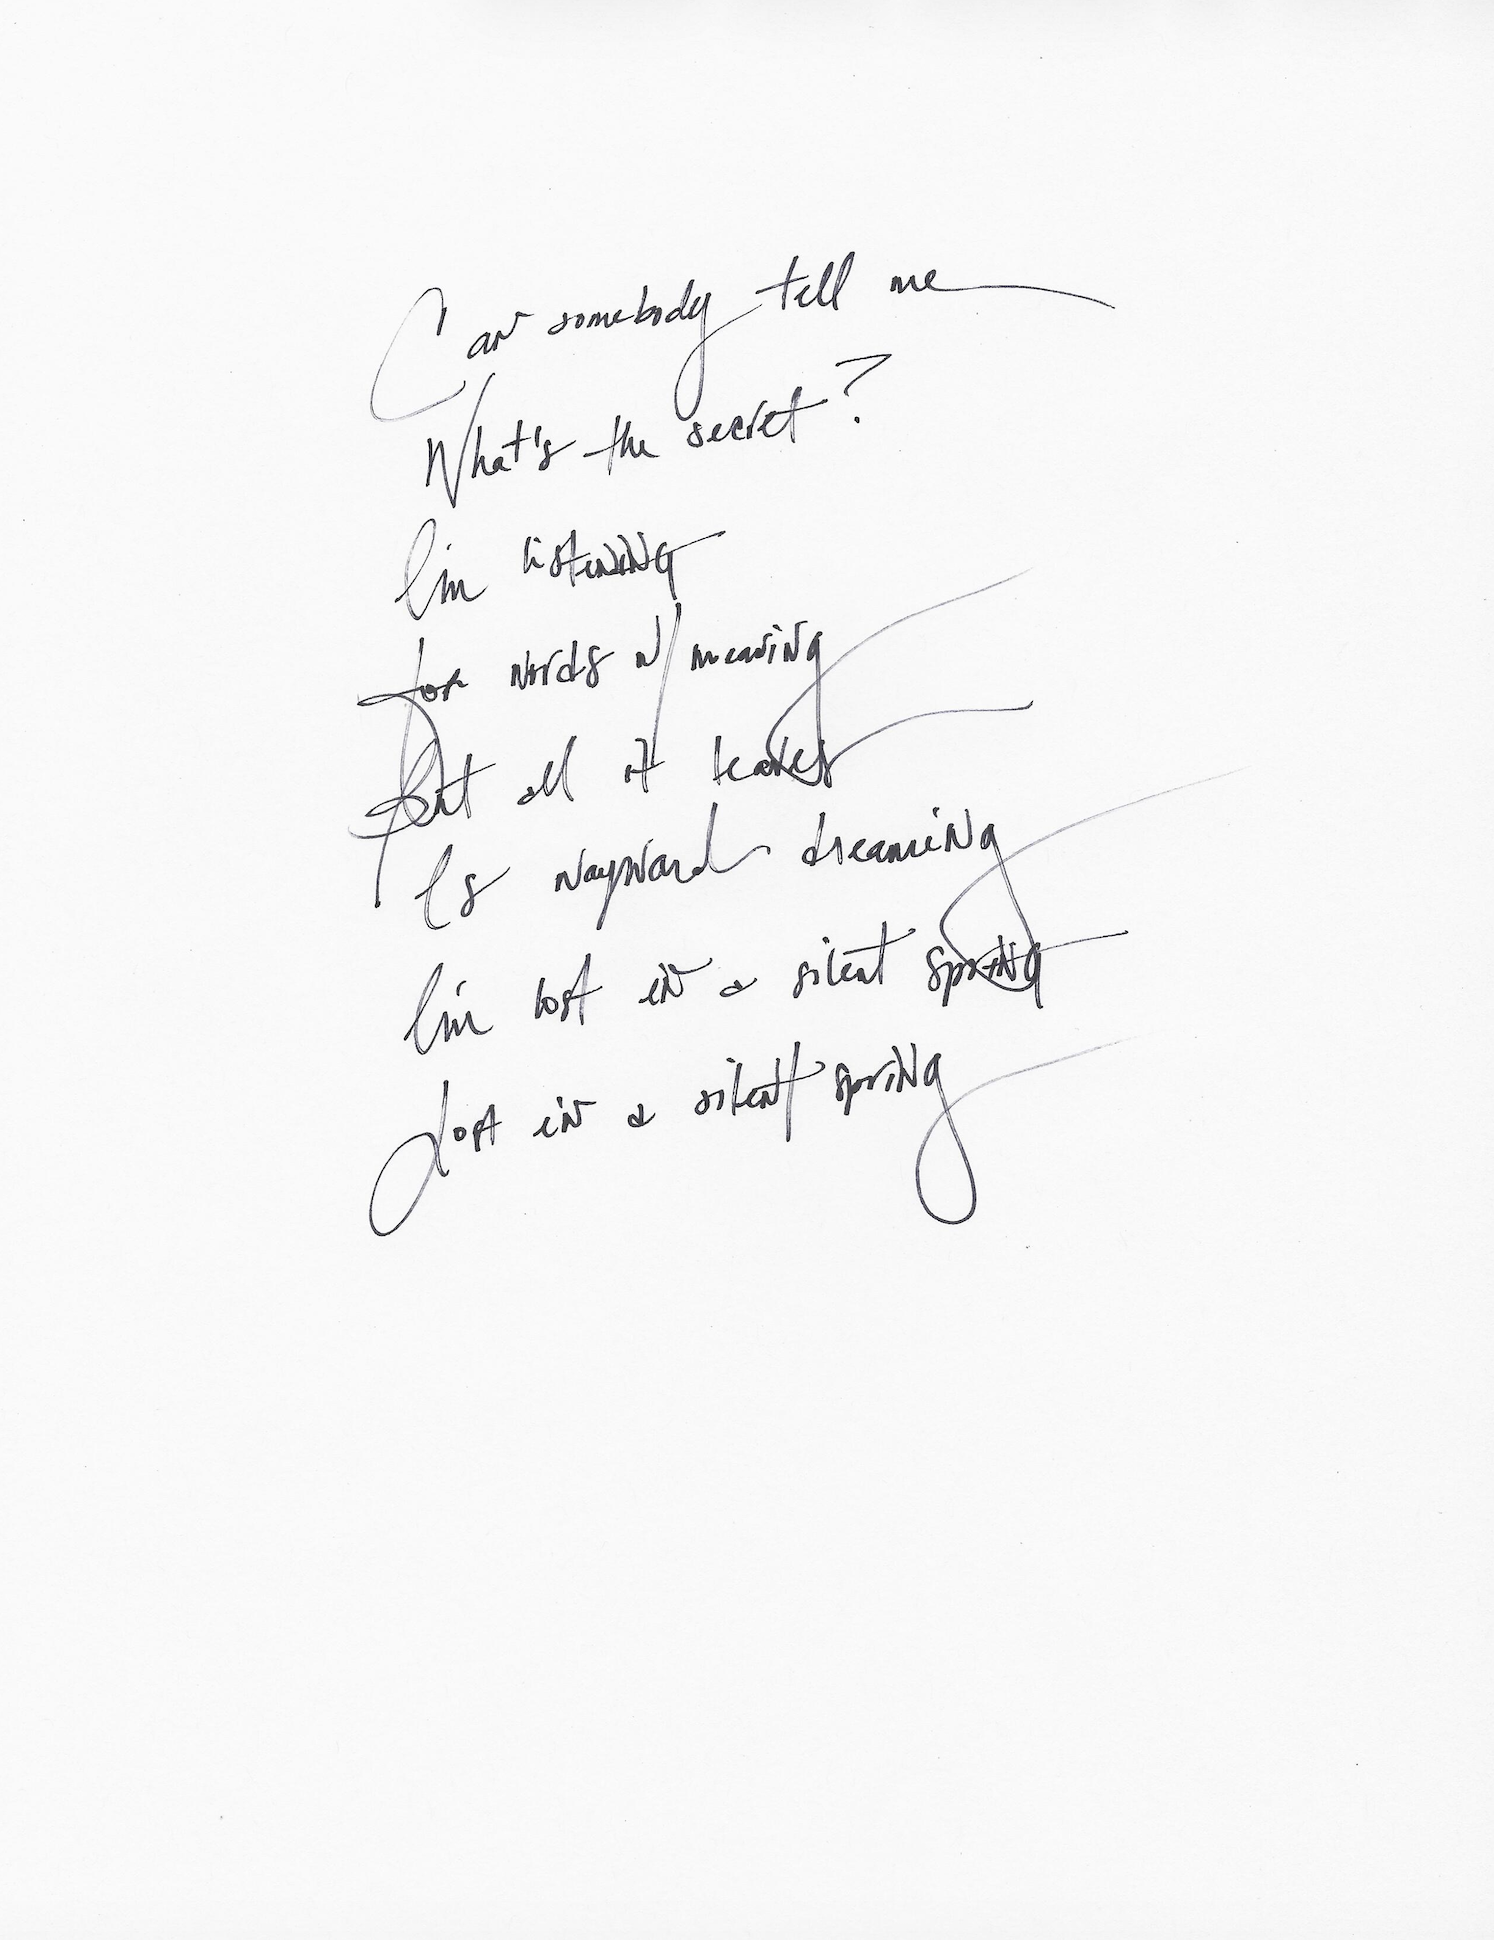 Can somebody tell me
What's the secret?
I'm listening
for words w/ meaning
But all it leaves
Is wayward dreaming
I'm lost in a silent spring
Lost in a silent spring